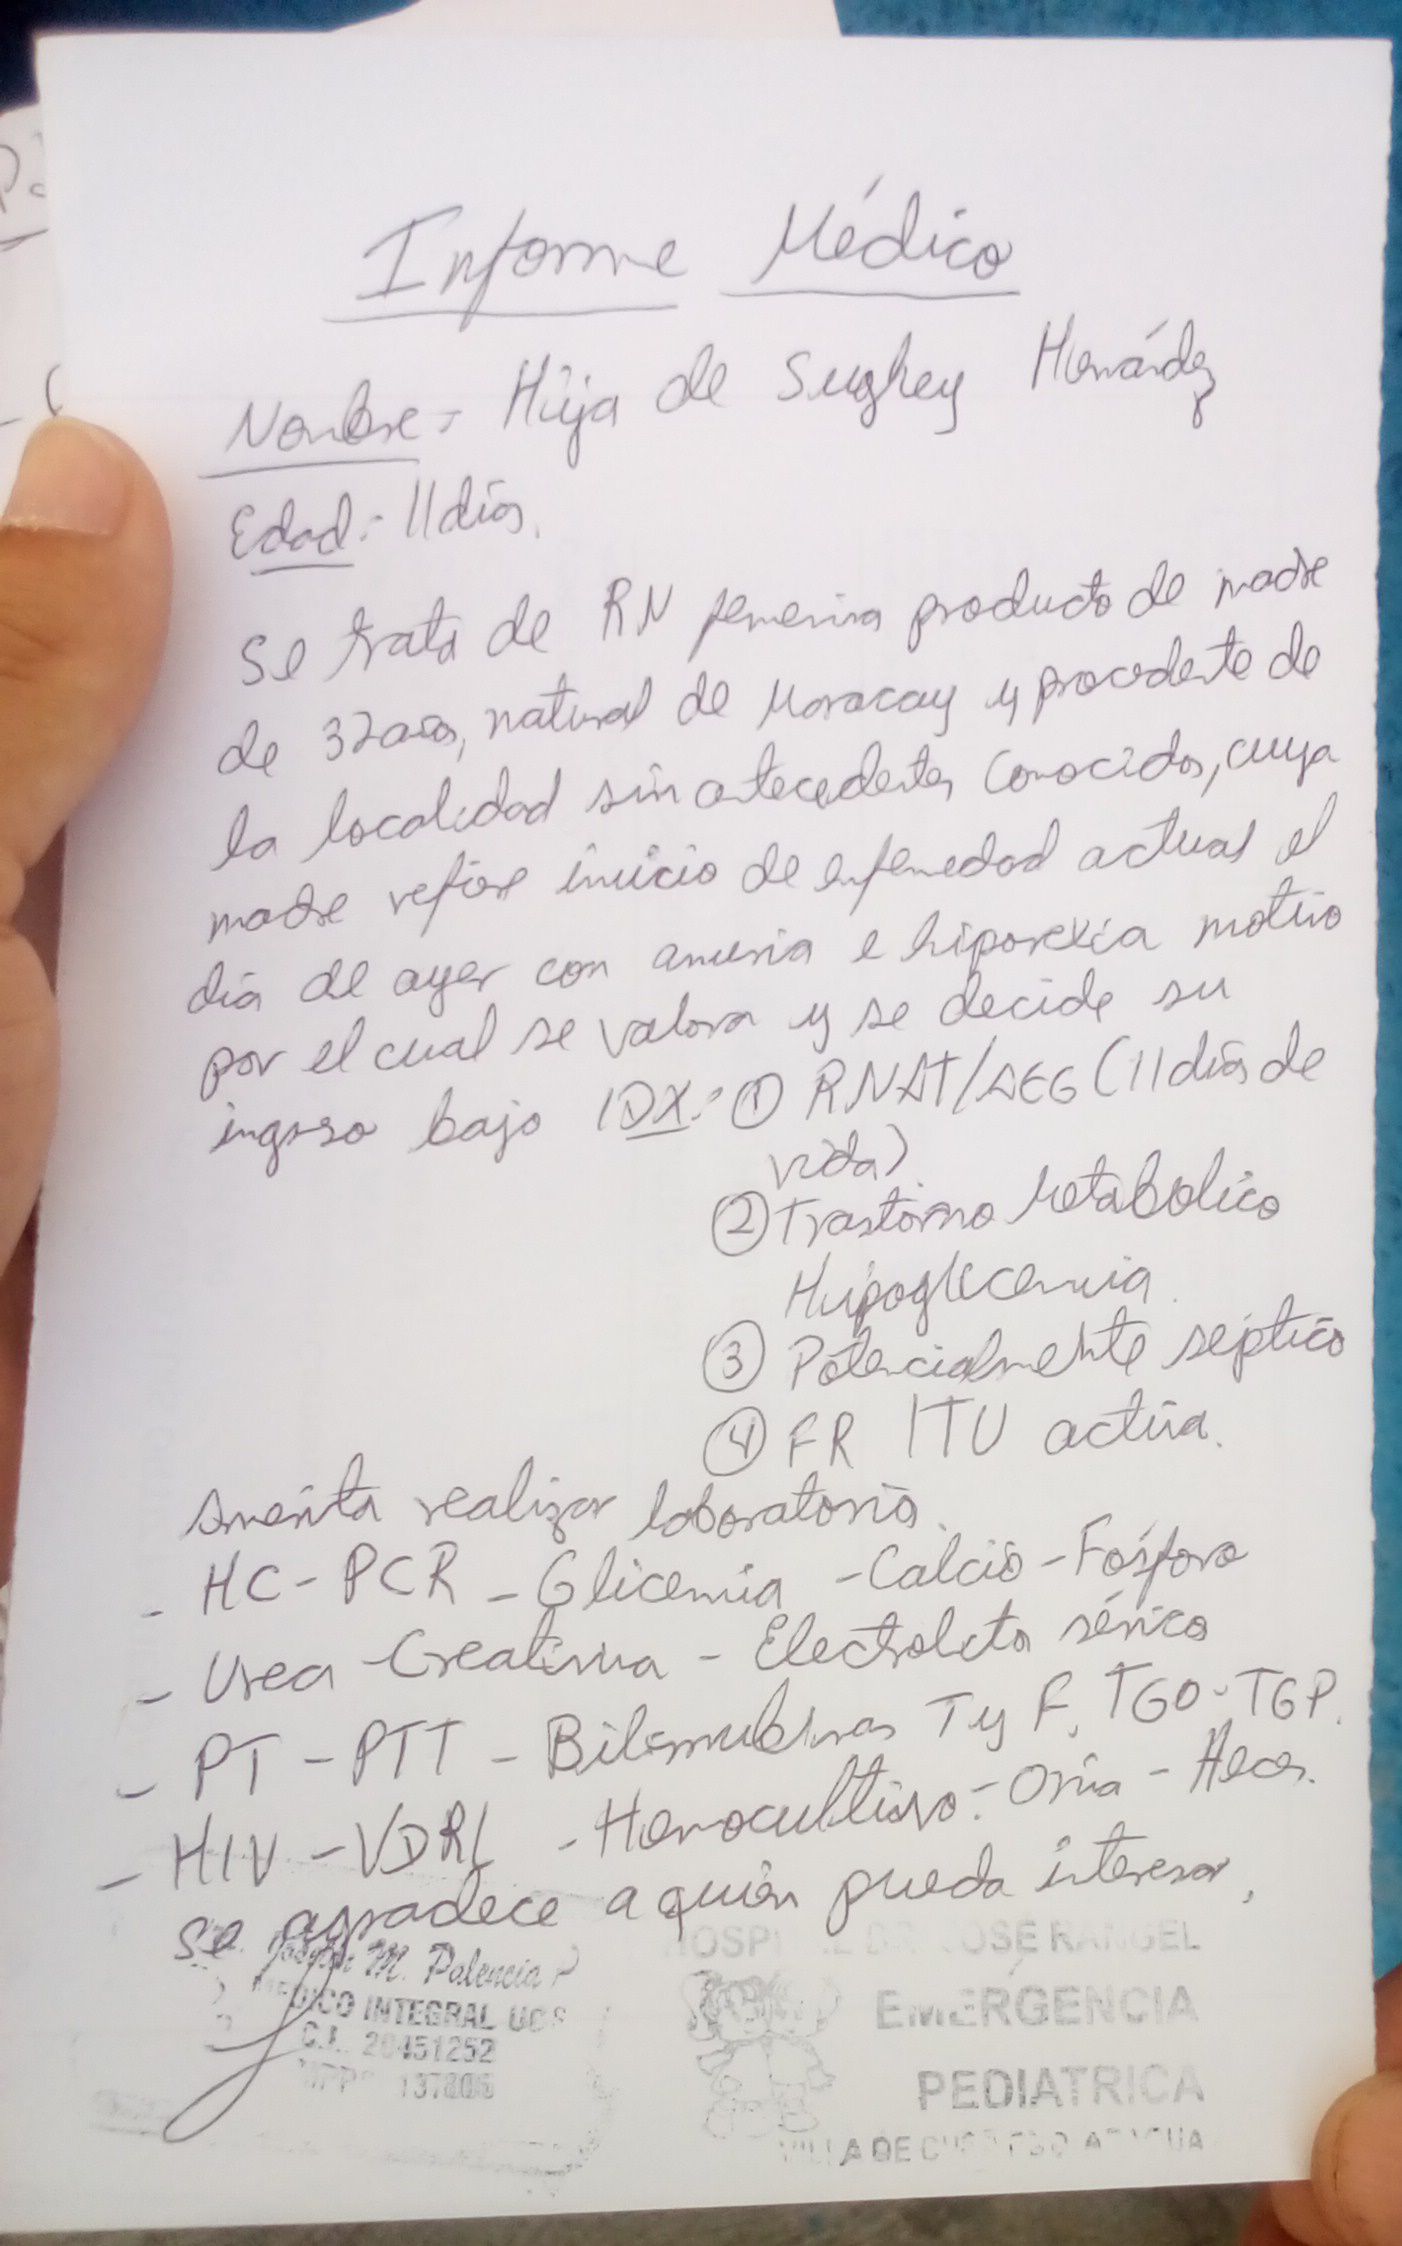 Informe Médico
Nombre: Hija de Sughey Hernández
Edad: 11 días.
Se trata de RN femenina producto de madre
de 32 años, natural de Maracay y procedente de
la localidad sin antecedentes conocidos, cuya
madre refiere inicio de enfermedad actual el
día de ayer con anuria e hiporexia motivo
por el cual se valora y se decide su
ingreso bajo IDX: ① RNAT/AEG (11 días de
vida).
② Trastorno Metabolico
Hipoglicemia.
③ Potencialmente séptico
④ FR ITU activa.
Amerita realizar laboratorios.
- HC - PCR - Glicemia - Calcio - Fósforo
- Urea - Creatinina - Electrolitos séricos
- PT - PTT - Bilirrubinas T y F, TGO - TGP.
- HIV - VDRL - Hemocultivo - Orina - Heces.
Se agradece a quién pueda interesar,
M. Palencia P
MEDICO INTEGRAL
C.I. 20451252
HOSPI DR. JOSE RANGEL
EMERGENCIA
PEDIATRICA
VILLA DE